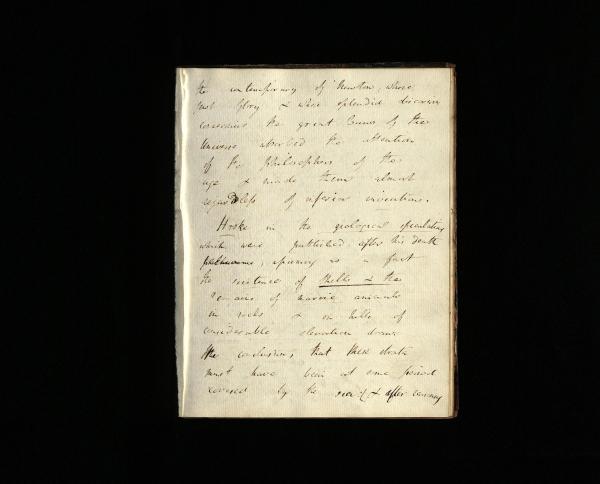 the contemporary of Newton, whose
just Glory, & whose splendid discoveries
concerning the great Laws of the
Universe absorbed the attention
of the Philosophers of the
age & made them almost
regardless of inferior inventions.
Hooke in the geological speculations
which were published after his death
assuming as a fact
the existence of shells & the
remains of marine animals
in rocks & on hills of
considerable elevation draws
the conclusion, that these strata
must have been at some period
covered by the sea: & after